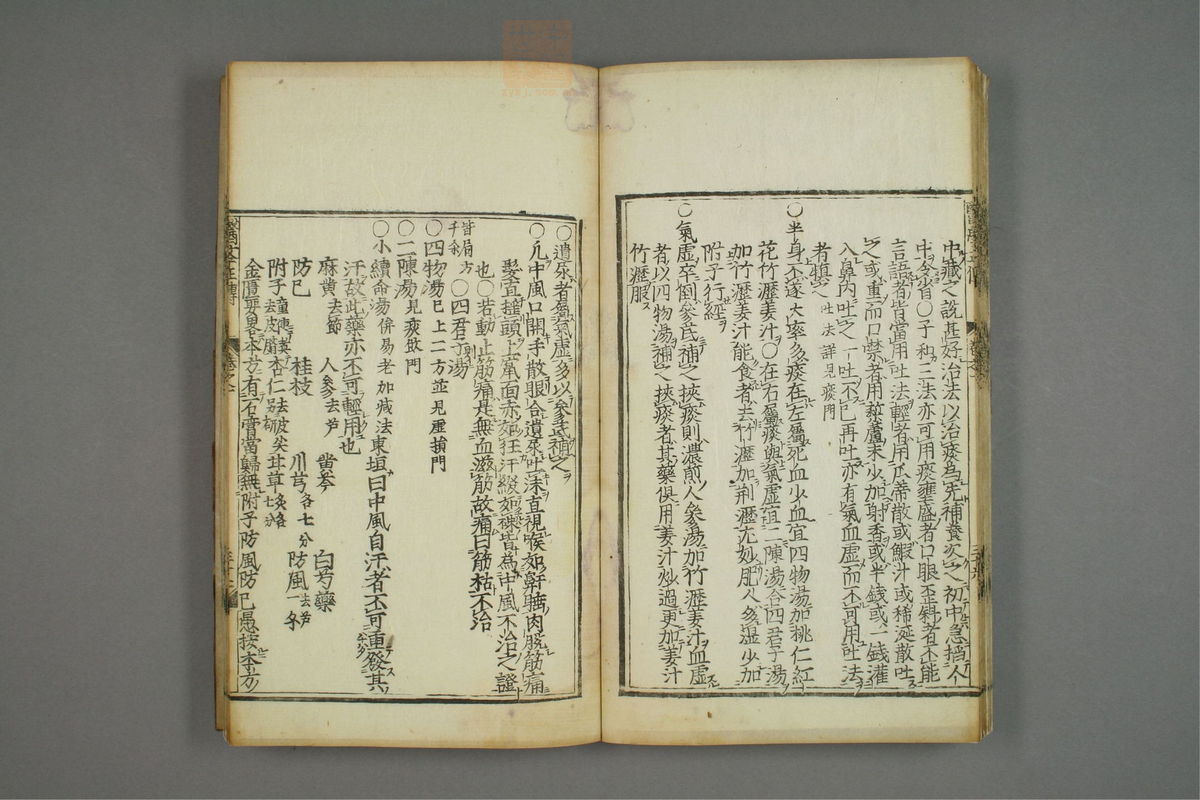 中藏之說甚好治法以治痰爲先補養次之初中急掐人
中令省○子和三法亦可用痰壅盛者口眼歪斜者不能
言語者皆當用吐法輕者用瓜蒂散或鰕汁或稀涎散吐
之或重而口禁者用藜蘆末少加射香或半錢或一錢灌
入鼻內吐之一吐不已再吐亦有氣血虛而不可用吐法
者慎之吐法詳見痰門
○半身不遂大率多痰在左屬死血少血宜四物湯加桃仁紅
花竹瀝姜汁○在右屬痰與氣虛宜二陳湯合四君子湯
加竹瀝姜汁能食者去竹瀝加荊瀝尤妙肥人多濕少加
附子行經
○氣虛卒倒參芪補之挾痰則濃煎人參湯加竹瀝姜汁血虛
者以四物湯補之挾痰者其藥俱用姜汁炒過更加姜汁
竹瀝服
○遺尿者屬氣虛多以參芪補之
○凡中風口開手散眼合遺尿吐沫直視喉如鼾睡肉脫筋痛
髮直搖頭上竄面赤如狂汗綴如珠皆為中風不治之證
也○若動止筋痛是無血滋筋故痛曰筋枯不治
○四君子湯
○四物湯已上二方並見虛損門
○二陳湯見痰飲門
○小續命湯倂易老加減法東垣曰中風自汗者不可重發其
汗故此藥亦不可輕用也
麻黃去節 人參去芦 黃芩 白芍藥
防已 桂枝 川芎各七分 防風一 去芦
附子 去皮 杏仁 去皮尖 甘草炙各七分
金匱要畧本方有石膏當歸無附子防風防已愚按本方